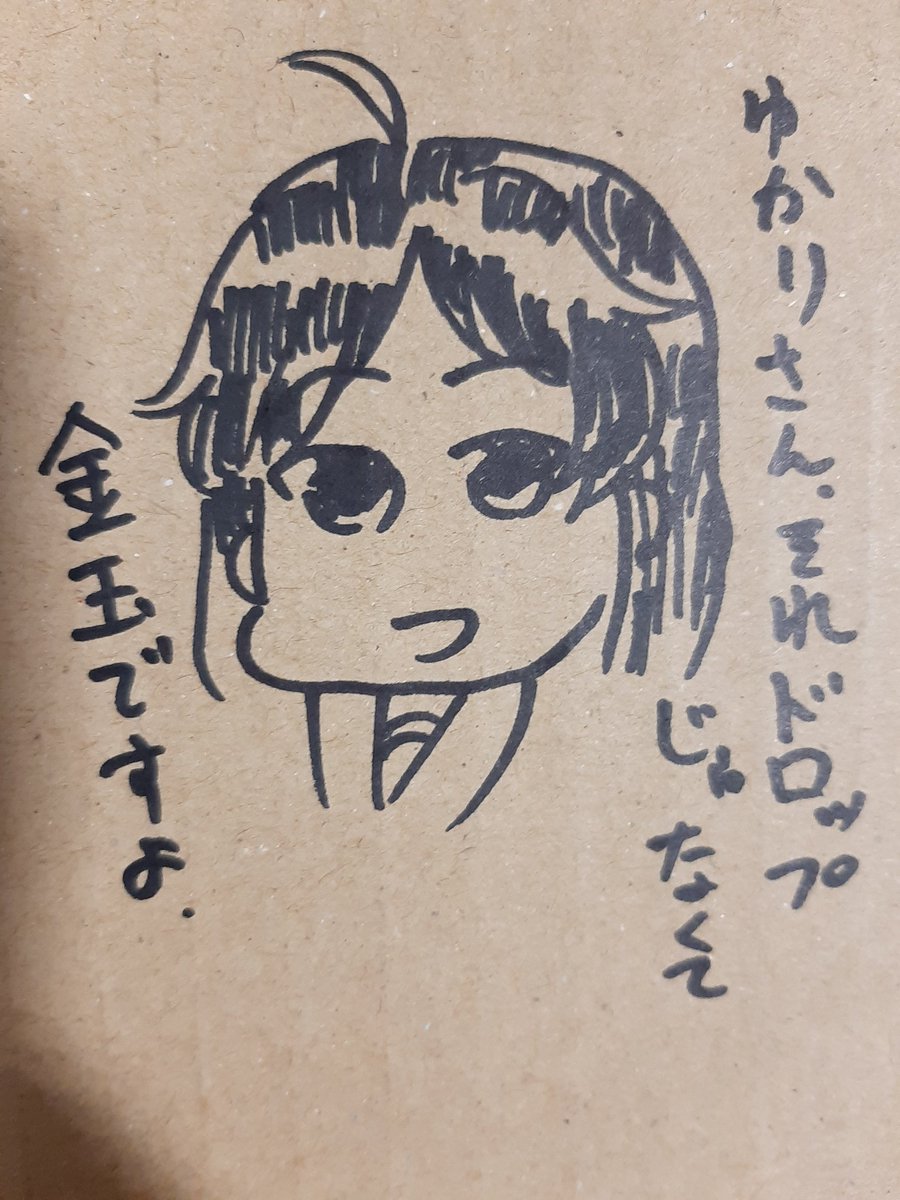 ゆかりさん.それドロップ
じゃなくて
金玉ですよ.